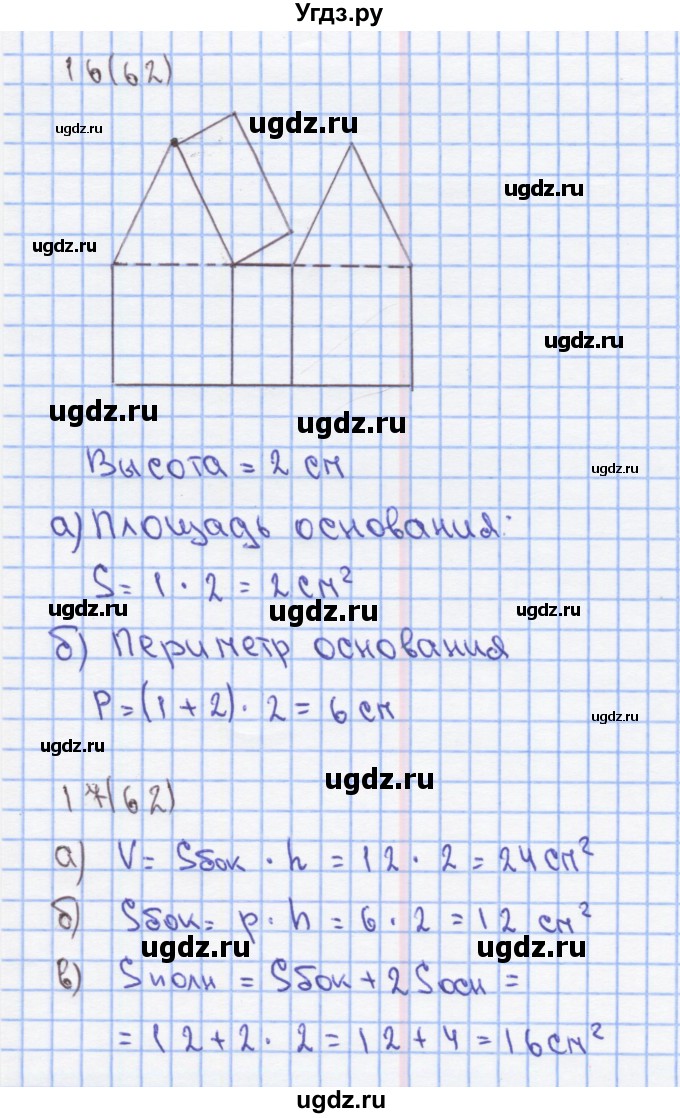 Угдз.ру
16(62)
ugdz.ru
ugdz.ru
ugdz.ru
ugdz.ru
ugdz.ru
ugdz.ru
ugdz.ru
Высота = 2 см
ugdz.ru
а) Площадь основания:
S = 1 · 2 = 2 см²
ugdz.ru
ugdz.ru
ugdz.ru
б) Периметр основания
P = (1 + 2) · 2 = 6 см
ugdz.ru
ugdz.ru
ugdz.ru
17(62)
а) V = Sбок · h = 12 · 2 = 24 см²
б) Sбок = p · h = 6 · 2 = 12 см²
ugdz.ru
ugdz.ru
в) Sполн = Sбок + 2 Sосн =
= 12 + 2 · 2 = 12 + 4 = 16 см²
ugdz.ru